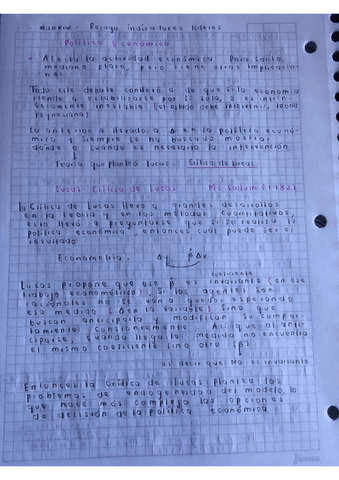 Mankiw - Rezago indicadores líderes
Política Económica
- Afecta la actividad económica para corto,
mediano plazo, pero tiene otras implicacio-
nes.
Todo este debate conllevó a de que si la economía
tiende a estabilizarse por sí sola, o es intrín-
secamente inestable (el estado debe intervenir, teoría
keynesiana)
Lo anterior a llevado a Δ en la política econó-
mica y siempre se ha buscado mostrar
dónde o cuándo es necesaria la intervención
Teoría que planteó Lucas: Crítica de Lucas
Lucas Crítica de Lucas Mc Callum (1982)
La Crítica de Lucas llevó a grandes desarrollos
en la teoría y en los métodos cuantitativos,
esto llevó a preguntarse que si se realiza la
política económica, entonces cual puede ser el
resultado
Econometría: Δy β Δx
coeficiente
Lucas propone que ese β es invariante (en ese
trabajo econométrico). Si los agentes son
racionales no se van a quedar esperando
esa medida o Δ en la variable, sino que
buscan anticiparla y modifican su compor-
tamiento constantemente. Así que al anti-
ciparse, cuando llegue la medida no encuentra
el mismo coeficiente sino otro (β)
es decir que: No es invariante
Entonces la Crítica de Lucas plantea los
problemas de endogeneidad del modelo, lo
que hace más compleja las opciones
de decisión de la política económica